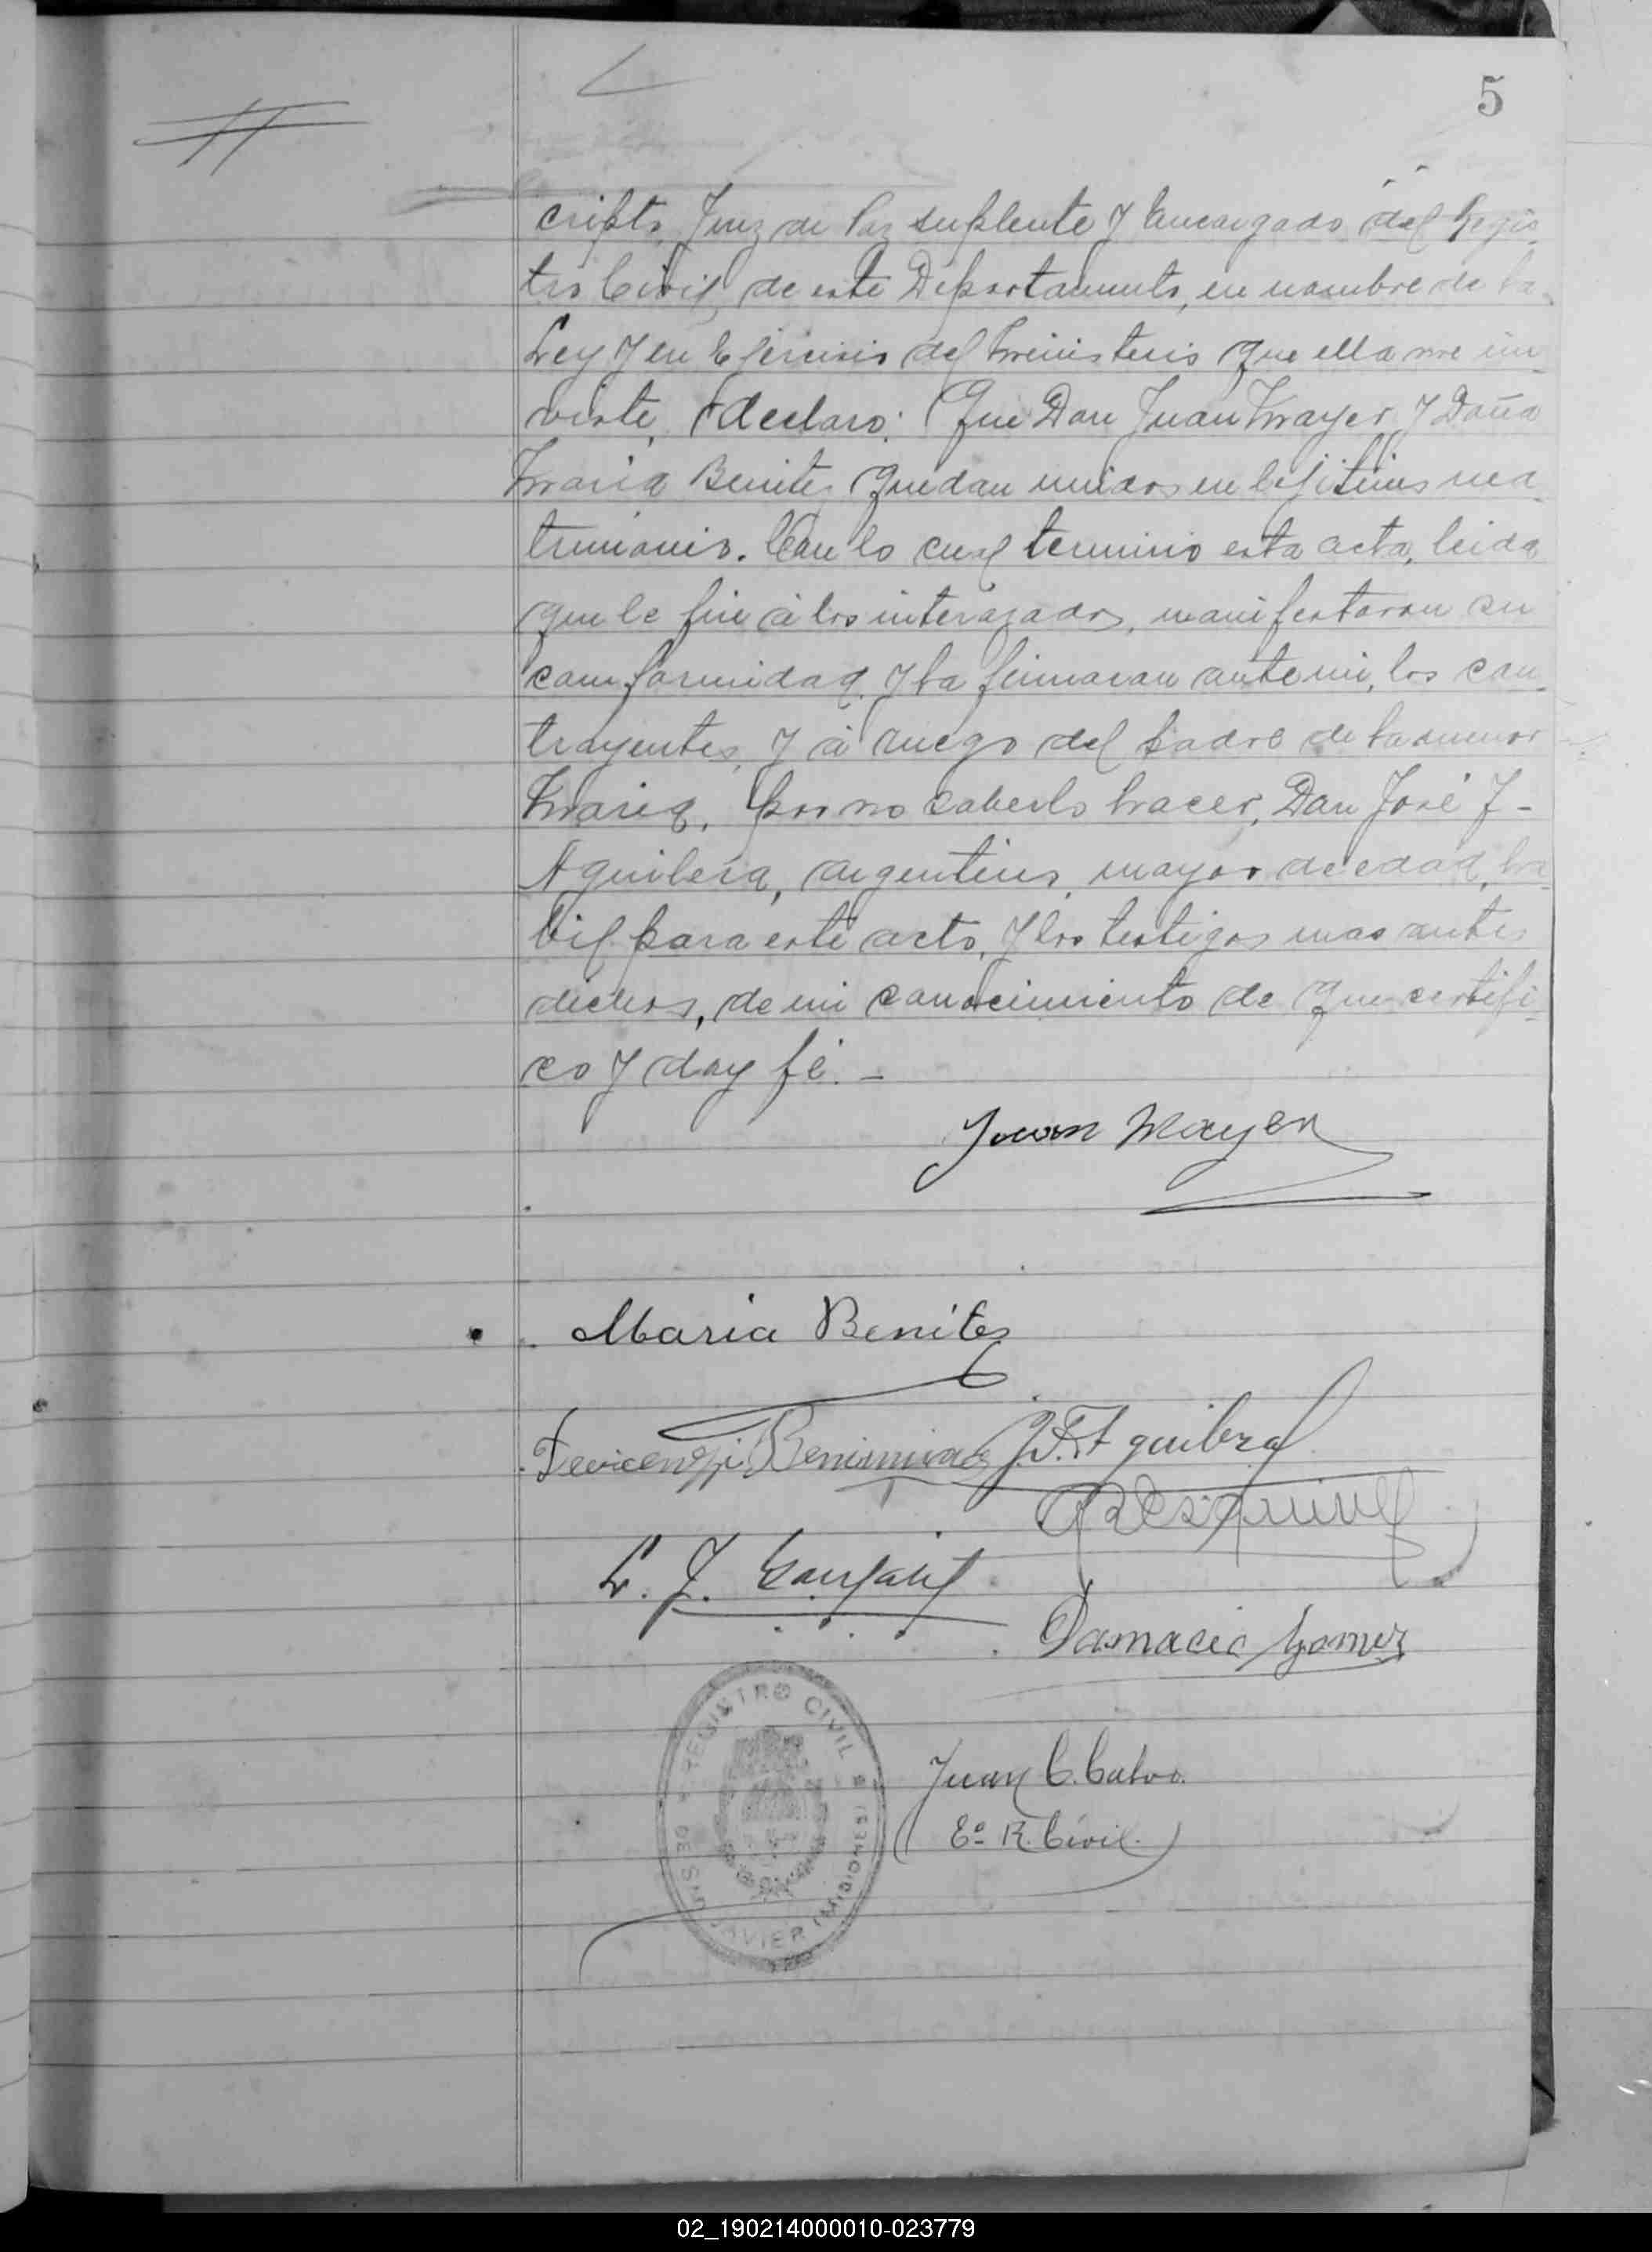 5
cripto, Juez de Paz suplente y Encargado del Regis
tro Civil, de este Departamento, en nombre de la
Ley y en Ejercicio del Ministerio que ella me in
viste, declaro: Que Don Juan Mayer y Doña
Maria Benitez quedan unidos en lejitimo ma
trimonio. Con lo cual termino esta acta, leida
que le fue á los interezados, manifestaron su
conformidad y la firmaron ante mi, los con
trayentes, y á ruego del padre de la menor
Maria, por no saberlo hacer, Don José F-
Aguilera, argentino, mayor de edad, ha
bil para este acto, y los testigos mas antes
dichos, de mi conocimiento de que certifi
co y doy fé. -
Juan Mayer
Maria Benites
J. F. Aguilera
L. J.
Damacio Gomez
REGISTRO CIVIL
DE SAN JAVIER (MISIONES)
Juan C. Calvo.
Eº R. Civil.
02_190214000010-023779